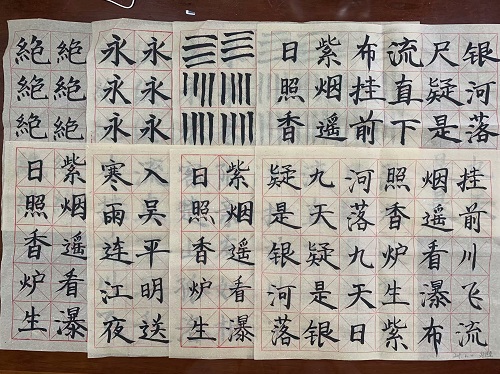 絕絕絕
絕絕絕
永永永
永永永
日照香
紫烟遥
布挂前
流直下
尺疑是
银河落
日照香炉生
紫烟遥看瀑
寒雨连江夜
入吴平明送
日照香炉生
紫烟遥看瀑
疑是银河落
九天疑是银
河落九天日
照香炉生紫
烟遥看瀑布
挂前川飞流